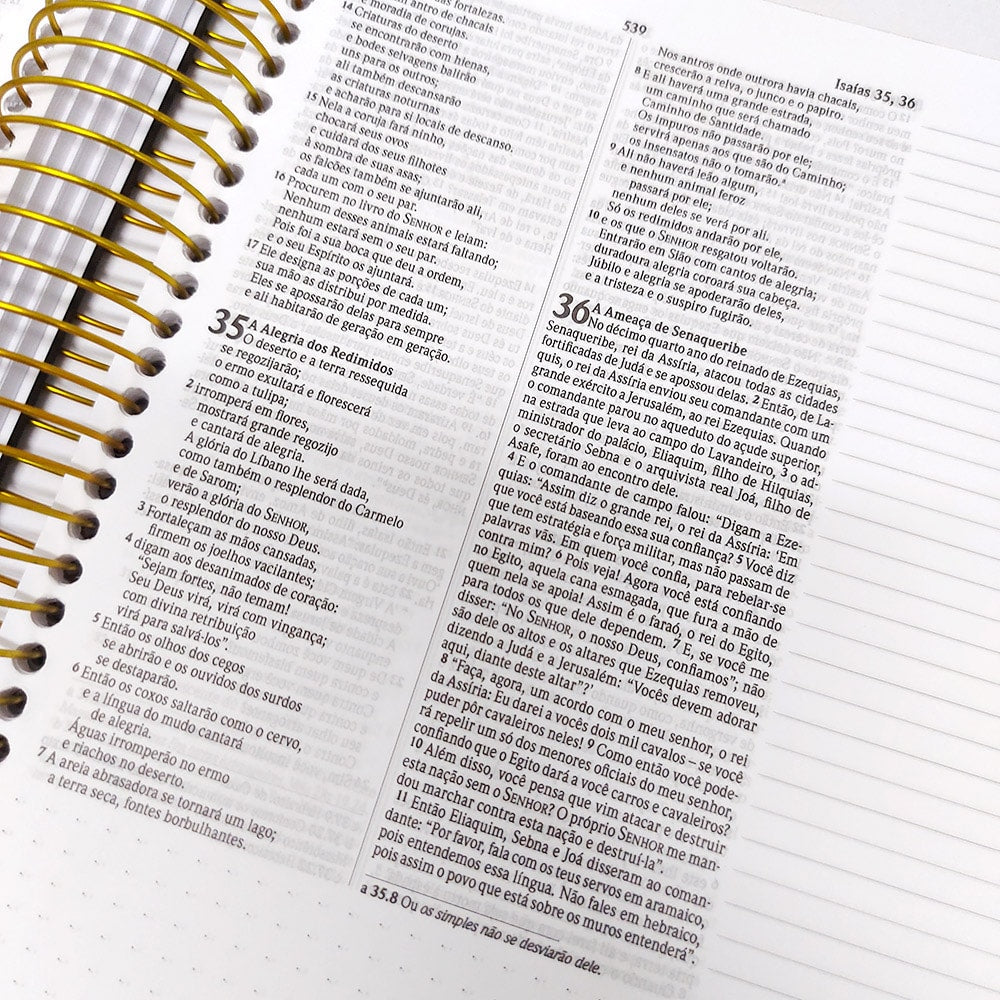 539
Isaías 35, 36
as fortalezas.
antro de chacais
e moradia de corujas.
14 Criaturas do deserto
se encontrarão com hienas,
e bodes selvagens balirão
uns para os outros;
ali também descansarão
as criaturas noturnas
e acharão para si locais de descanso.
15 Nela a coruja fará ninho,
chocará seus ovos
e cuidará dos seus filhotes
à sombra de suas asas;
os falcões também se ajuntarão ali,
cada um com o seu par.
16 Procurem no livro do SENHOR e leiam:
Nenhum desses animais estará faltando;
nenhum estará sem o seu par.
Pois foi a sua boca que deu a ordem,
e o seu Espírito os ajuntará.
17 Ele designa as porções de cada um;
sua mão as distribui por medida.
Eles se apossarão delas para sempre
e ali habitarão de geração em geração.
35 A Alegria dos Redimidos
O deserto e a terra ressequida
se regozijarão;
o ermo exultará e florescerá
como a tulipa;
2 irromperá em flores,
mostrará grande regozijo
e cantará de alegria.
A glória do Líbano lhe será dada,
como também o resplendor do Carmelo
e de Sarom;
verão a glória do SENHOR,
o resplendor do nosso Deus.
3 Fortaleçam as mãos cansadas,
firmem os joelhos vacilantes;
4 digam aos desanimados de coração:
“Sejam fortes, não temam!
Seu Deus virá, virá com vingança;
com divina retribuição
virá para salvá-los”.
5 Então os olhos dos cegos
se abrirão e os ouvidos dos surdos
se destaparão.
6 Então os coxos saltarão como o cervo,
e a língua do mudo cantará
de alegria.
Águas irromperão no ermo
e riachos no deserto.
7 A areia abrasadora se tornará um lago;
a terra seca, fontes borbulhantes.
Nos antros onde outrora havia chacais,
crescerão a relva, o junco e o papiro.
8 E ali haverá uma grande estrada,
um caminho que será chamado
Caminho de Santidade.
Os impuros não passarão por ele;
servirá apenas aos que são do Caminho;
os insensatos não o tomarão.a
9 Ali não haverá leão algum,
e nenhum animal feroz
passará por ele;
nenhum deles se verá por ali.
Só os redimidos andarão por ele,
10 e os que o SENHOR resgatou voltarão.
Entrarão em Sião com cantos de alegria;
duradoura alegria coroará sua cabeça.
Júbilo e alegria se apoderarão deles,
e a tristeza e o suspiro fugirão.
36 A Ameaça de Senaqueribe
No décimo quarto ano do reinado de Ezequias,
Senaqueribe, rei da Assíria, atacou todas as cidades
fortificadas de Judá e se apossou delas. 2 Então, de La-
quis, o rei da Assíria enviou seu comandante com um
grande exército a Jerusalém, ao rei Ezequias. Quando
o comandante parou no aqueduto do açude superior,
na estrada que leva ao campo do Lavandeiro, 3 o ad-
ministrador do palácio, Eliaquim, filho de Hilquias,
o secretário Sebna e o arquivista real Joá, filho de
Asafe, foram ao encontro dele.
4 E o comandante de campo falou: “Digam a Eze-
quias: “Assim diz o grande rei, o rei da Assíria: ‘Em
que você está baseando essa sua confiança? 5 Você diz
que tem estratégia e força militar, mas não passam de
palavras vãs. Em quem você confia, para rebelar-se
contra mim? 6 Pois veja! Agora você está confiando
no Egito, aquela cana esmagada, que fura a mão de
quem nela se apoia! Assim é o faraó, o rei do Egito,
para todos os que dele dependem. 7 E, se você me
disser: “No SENHOR, o nosso Deus, confiamos”; não
são dele os altos e os altares que Ezequias removeu,
dizendo a Judá e a Jerusalém: “Vocês devem adorar
aqui, diante deste altar”?’
8 “Faça, agora, um acordo com o meu senhor, o rei
da Assíria: Eu darei a vocês dois mil cavalos – se você
puder pôr cavaleiros neles! 9 Como então você pode-
rá repelir um só dos menores oficiais do meu senhor,
confiando que o Egito dará a você carros e cavaleiros?
10 Além disso, você pensa que vim atacar e destruir
esta nação sem o SENHOR? O próprio SENHOR me man-
dou marchar contra esta nação e destruí-la”.
11 Então Eliaquim, Sebna e Joá disseram ao coman-
dante: “Por favor, fala com os teus servos em aramaico,
pois entendemos essa língua. Não fales em hebraico,
pois assim o povo que está sobre os muros entenderá”.
a 35.8 Ou os simples não se desviarão dele.